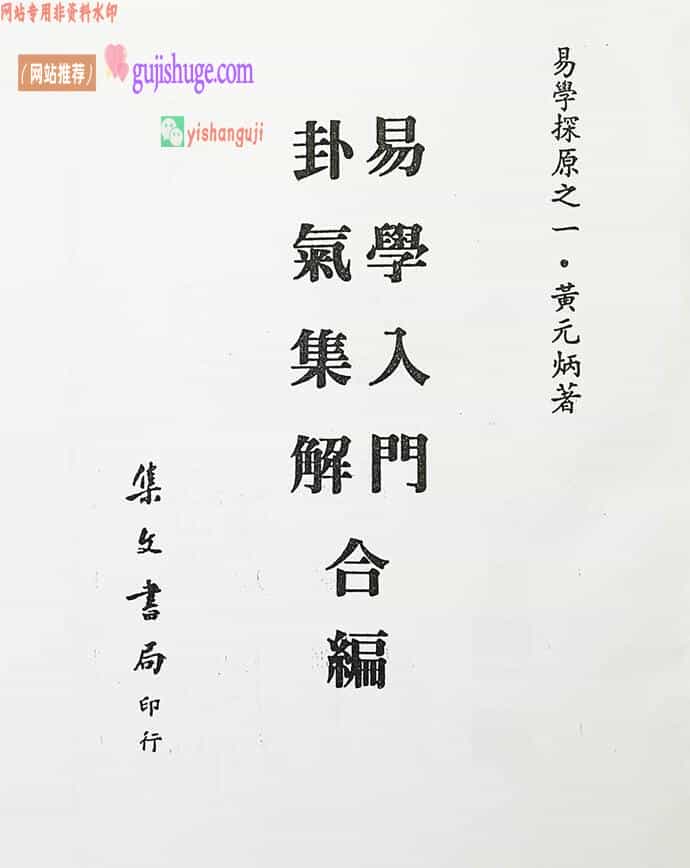 网站专用非资料水印
（网站推荐）
gujishuge.com
yishanguji
易學探原之一·黃元炳著
易學入門
卦氣集解
合編
集文書局印行